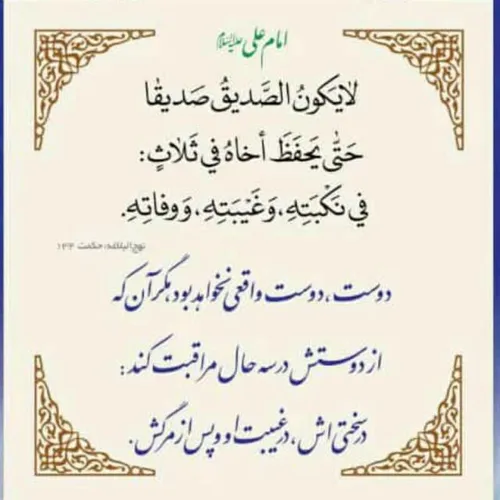 امام علی علیه‌السلام
لايَكونُ الصَّديقُ صَديقًا
حَتّٰى يَحفَظَ أخاهُ في ثَلاثٍ:
في نَكْبَتِهِ، وَغَيْبَتِهِ، وَوفاتِهِ.
نهج البلاغه، حکمت ۱۳۴
دوست، دوست واقعی نخواهد بود مگر آن که
از دوستش در سه حال مراقبت کند:
در سختی اش، در غیبت او و پس از مرگش.